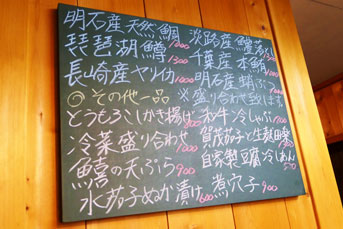 明石産天然鯛 1000 淡路産鱧落し
琵琶湖鱒 1300 千葉産本鮪
長崎産ヤリイカ 1000 明石産鯛ぶ
◎その他一品 ※盛り合わせ致します。
とうもろこしかき揚げ 800 和牛冷しゃぶ
冷菜盛り合わせ 1000 賀茂茄子と生麩田楽
鱚の天ぷら 900 自家製豆腐冷しあん 500
水茄子ぬか漬け 600 煮穴子 900